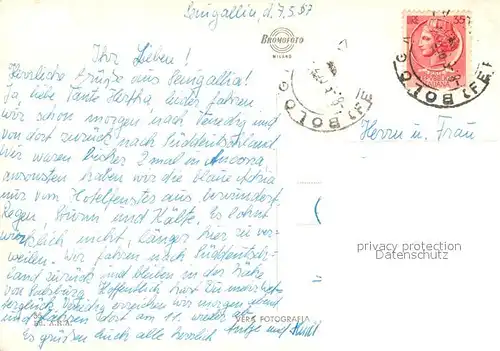 Senigallia, d. 7.5.57
BROMOFOTO
MILANO
Ihr Lieben!
Herrliche Grüße aus Senigallia!
Ja, liebe Tante Hertha, leider fahren
wir schon morgen nach Venedig und
von dort zurück nach Süddeutschland
Wir waren bisher 2 mal in Ancona
ansonsten haben wir die blaue Adria
nur vom Hotelfenster aus bewundert.
Regen, Sturm und Kälte. Es lohnt
wirklich nicht, länger hier zu ver-
weilen. Wir fahren nach Süddeutsch-
land zurück und bleiben in der Nähe
von Salzburg. Hoffentlich hast Du mehr
Venedig erreichen wir morgen abend
und fahren dort am 11. wieder ab.
Es grüßen Euch alle herzlich
und
LIRE 35
REPUBBLICA
ITALIANA
BOLOG
(FE
BOLOG
(FE
Herrn u. Frau
privacy protection
Datenschutz
VERA FOTOGRAFIA